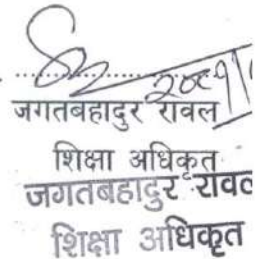 जगतबहादुर रावल
शिक्षा अधिकृत
जगतबहादुर रावल
शिक्षा अधिकृत